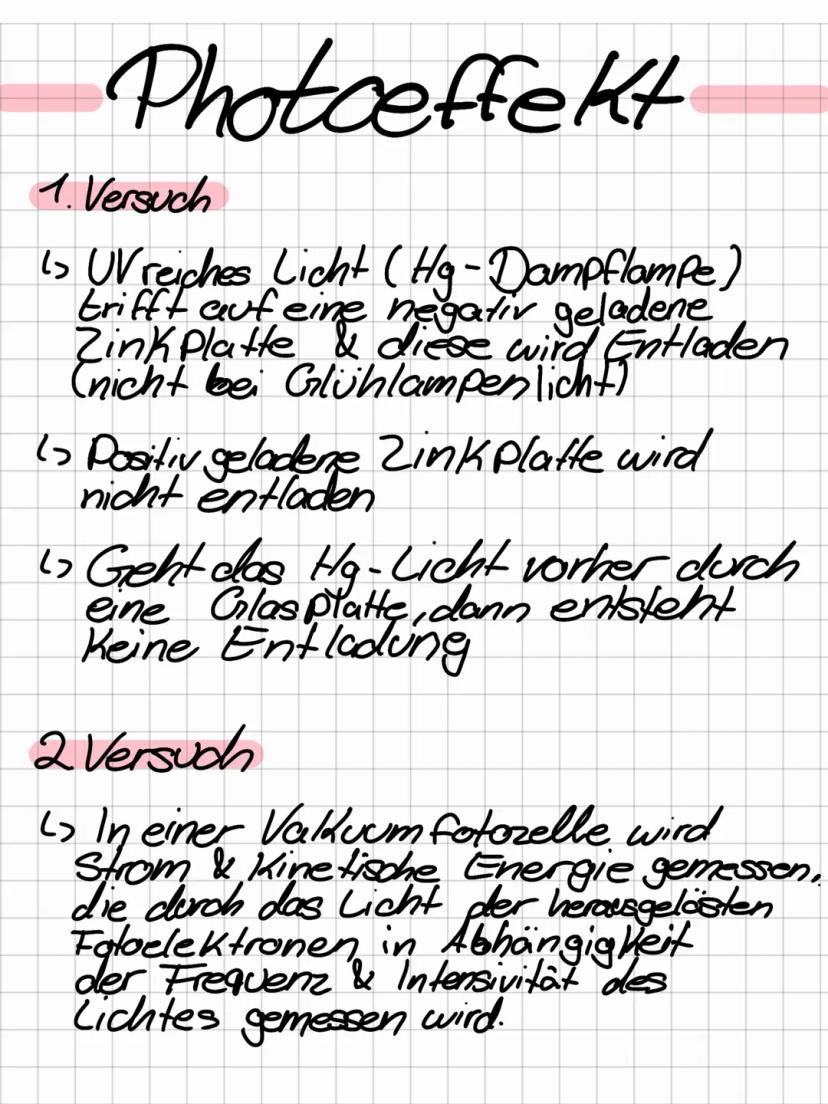 Photoeffekt
1. Versuch
↳ UV reiches Licht (Hg-Dampflampe)
trifft auf eine negativ geladene
Zinkplatte & diese wird Entladen
(nicht bei Glühlampenlicht)
↳ Positiv geladene Zinkplatte wird
nicht entladen
↳ Geht das Hg-Licht vorher durch
eine Glasplatte, dann entsteht
keine Entladung
2 Versuch
↳ In einer Vakuumfotozelle wird
Strom & kinetische Energie gemessen,
die durch das Licht der herausgelösten
Fotoelektronen in Abhängigkeit
der Frequenz & Intensivität des
Lichtes gemessen wird.